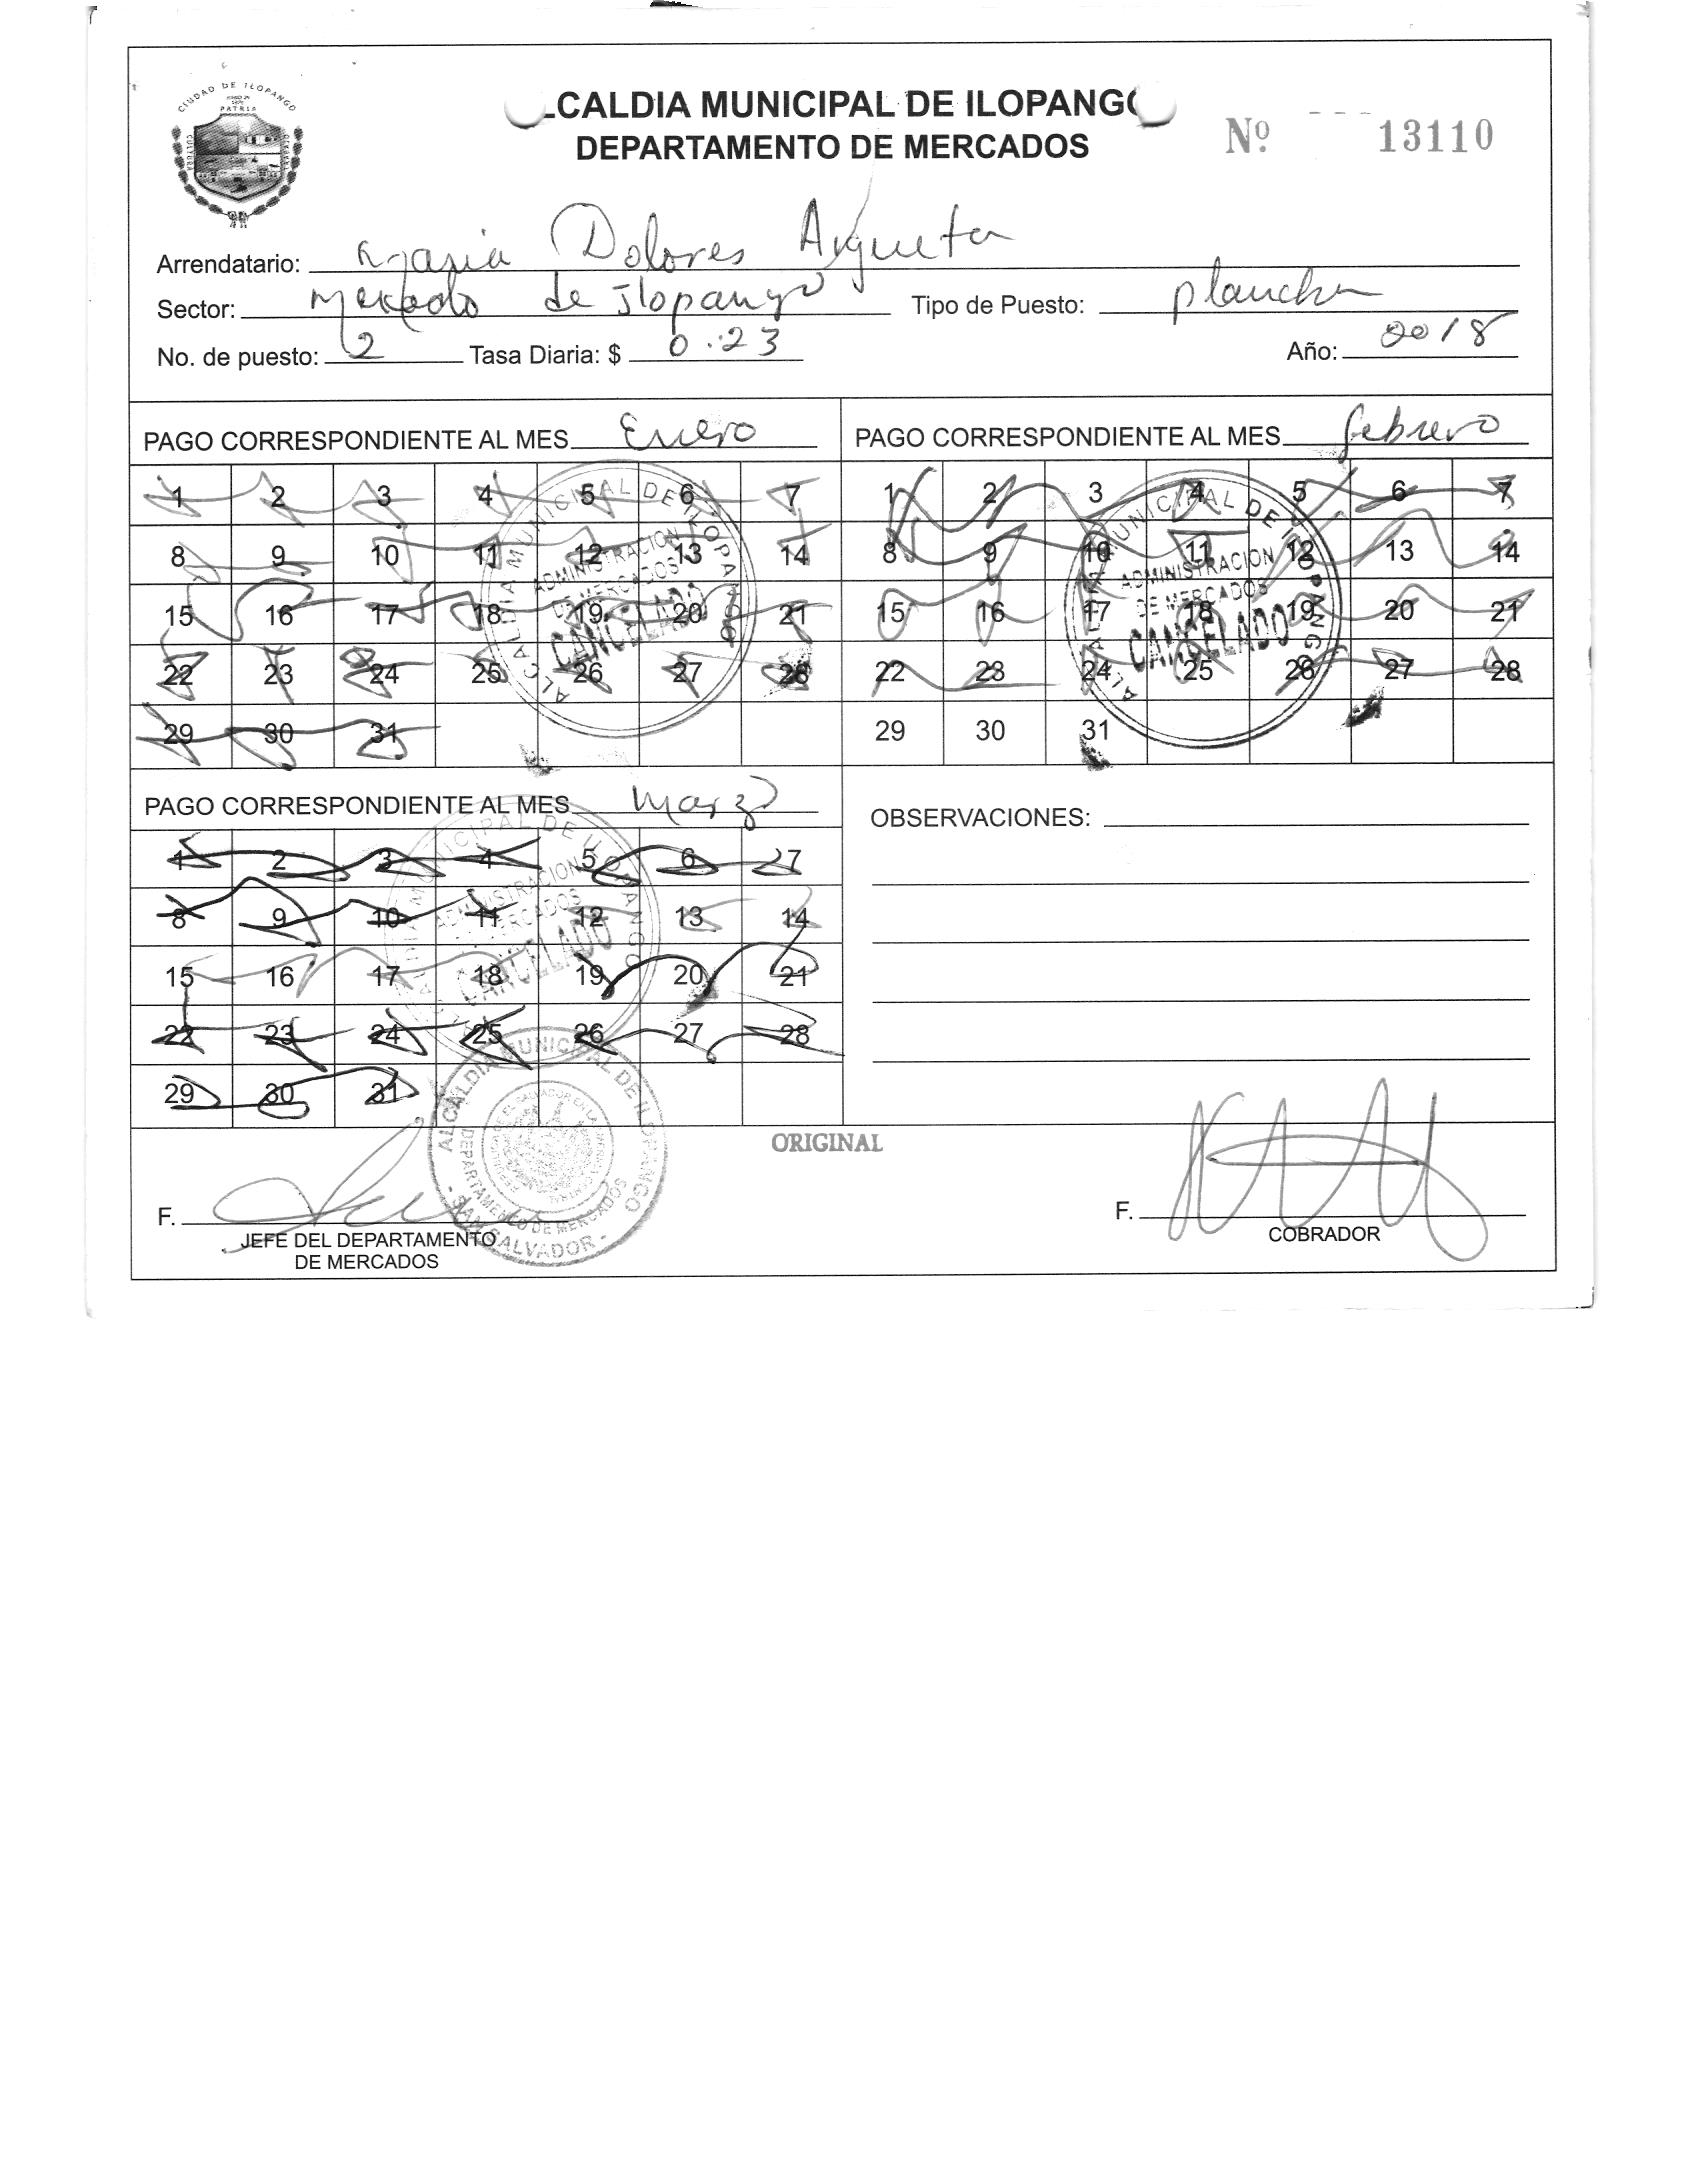 CIUDAD DE ILOPANGO
PATRIA
CULTURA
LCALDIA MUNICIPAL DE ILOPANGO
DEPARTAMENTO DE MERCADOS
Nº 13110
Arrendatario: Maria Dolores Argueta
Sector: Mercado de Ilopango Tipo de Puesto: plancha
No. de puesto: 2 Tasa Diaria: $ 0.23 Año: 2018
PAGO CORRESPONDIENTE AL MES Enero
1 2 3 4 5 6 7
8 9 10 11 12 13 14
15 16 17 18 19 20 21
22 23 24 25 26 27 28
29 30 31
ALCALDIA MUNICIPAL DE ILOPANGO
ADMINISTRACION
DE MERCADOS
CANCELADO
PAGO CORRESPONDIENTE AL MES febrero
1 2 3 4 5 6 7
8 9 10 11 12 13 14
15 16 17 18 19 20 21
22 23 24 25 26 27 28
29 30 31
ALCALDIA MUNICIPAL DE ILOPANGO
ADMINISTRACION
DE MERCADOS
CANCELADO
PAGO CORRESPONDIENTE AL MES Marzo
1 2 3 4 5 6 7
8 9 10 11 12 13 14
15 16 17 18 19 20 21
22 23 24 25 26 27 28
29 30 31
ALCALDIA MUNICIPAL DE ILOPANGO
ADMINISTRACION
DE MERCADOS
CANCELADO
OBSERVACIONES:
ORIGINAL
ALCALDIA MUNICIPAL DE ILOPANGO
DEPARTAMENTO DE MERCADOS
- SAN SALVADOR -
F.
JEFE DEL DEPARTAMENTO
DE MERCADOS
F.
COBRADOR